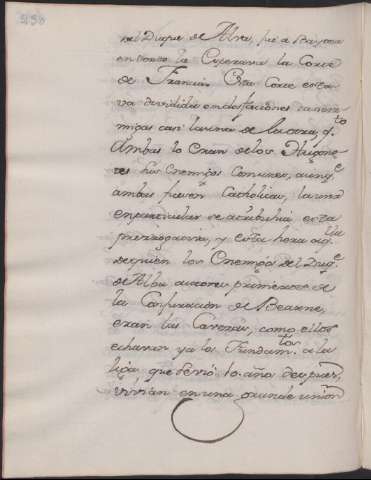 238
el Duque de Alva, fue a Bayona
en donde la Esperava la Corte
de Francia. Esta Corte estava
va dividida en dos faciones tan ene-
migas casi la una de la otra, q.
Ambas lo eran de los Hugono-
tes sus Enemigos Comunes, aunq.e
ambas fuesen Catholicas, la una
en particular se atribuhia esta
prerrogativa, y esta hera
los Enemigos del Duq.e
de Alba autores primeros de
la Conjuracion de Bearne,
eran las Cavezas, como ellos
echaron ya los Fundam.tos de la
liga, que servió 10. años despues,
vivian en una grande union